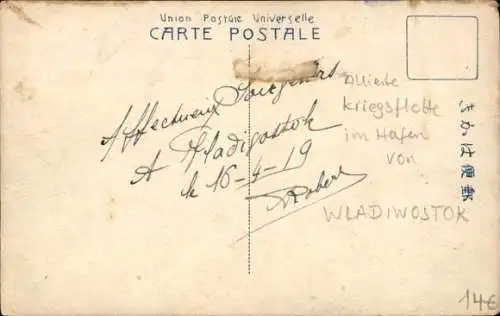 Union Postale Universelle
CARTE POSTALE
Affectueux Souvenirs
A Vladivostok
le 16-4-19
Robert
Allierte
Kriegsflotte
im Hafen
von
WLADIWOSTOK
きかは便郵
14€